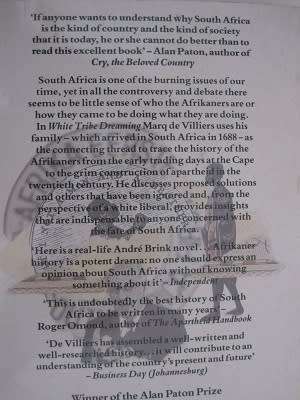 'If anyone wants to understand why South Africa
is the kind of country and the kind of society
that it is today, he or she cannot do better than to
read this excellent book' – Alan Paton, author of
Cry, the Beloved Country
South Africa is one of the burning issues of our
time, yet in all the controversy and debate there
seems to be little sense of who the Afrikaners are or
how they came to be doing what they are doing.
In White Tribe Dreaming Marq de Villiers uses his
family – which arrived in South Africa in 1688 – as
the connecting thread to trace the history of the
Afrikaners from the early trading days at the Cape
to the grim construction of apartheid in the
twentieth century. He discusses proposed solutions
and others that have been ignored and, from the
perspective of a white liberal, provides insights
that are indispensable to anyone concerned with
the fate of South Africa.
'Here is a real-life André Brink novel . . . Afrikaner
history is a potent drama: no one should express an
opinion about South Africa without knowing
something about it' – Independent
'This is undoubtedly the best history of South
Africa to be written in many years'
Roger Omond, author of The Apartheid Handbook
'De Villiers has assembled a well-written and
well-researched history . . . it will contribute to an
understanding of the country's present and future'
– Business Day (Johannesburg)
Winner of the Alan Paton Prize